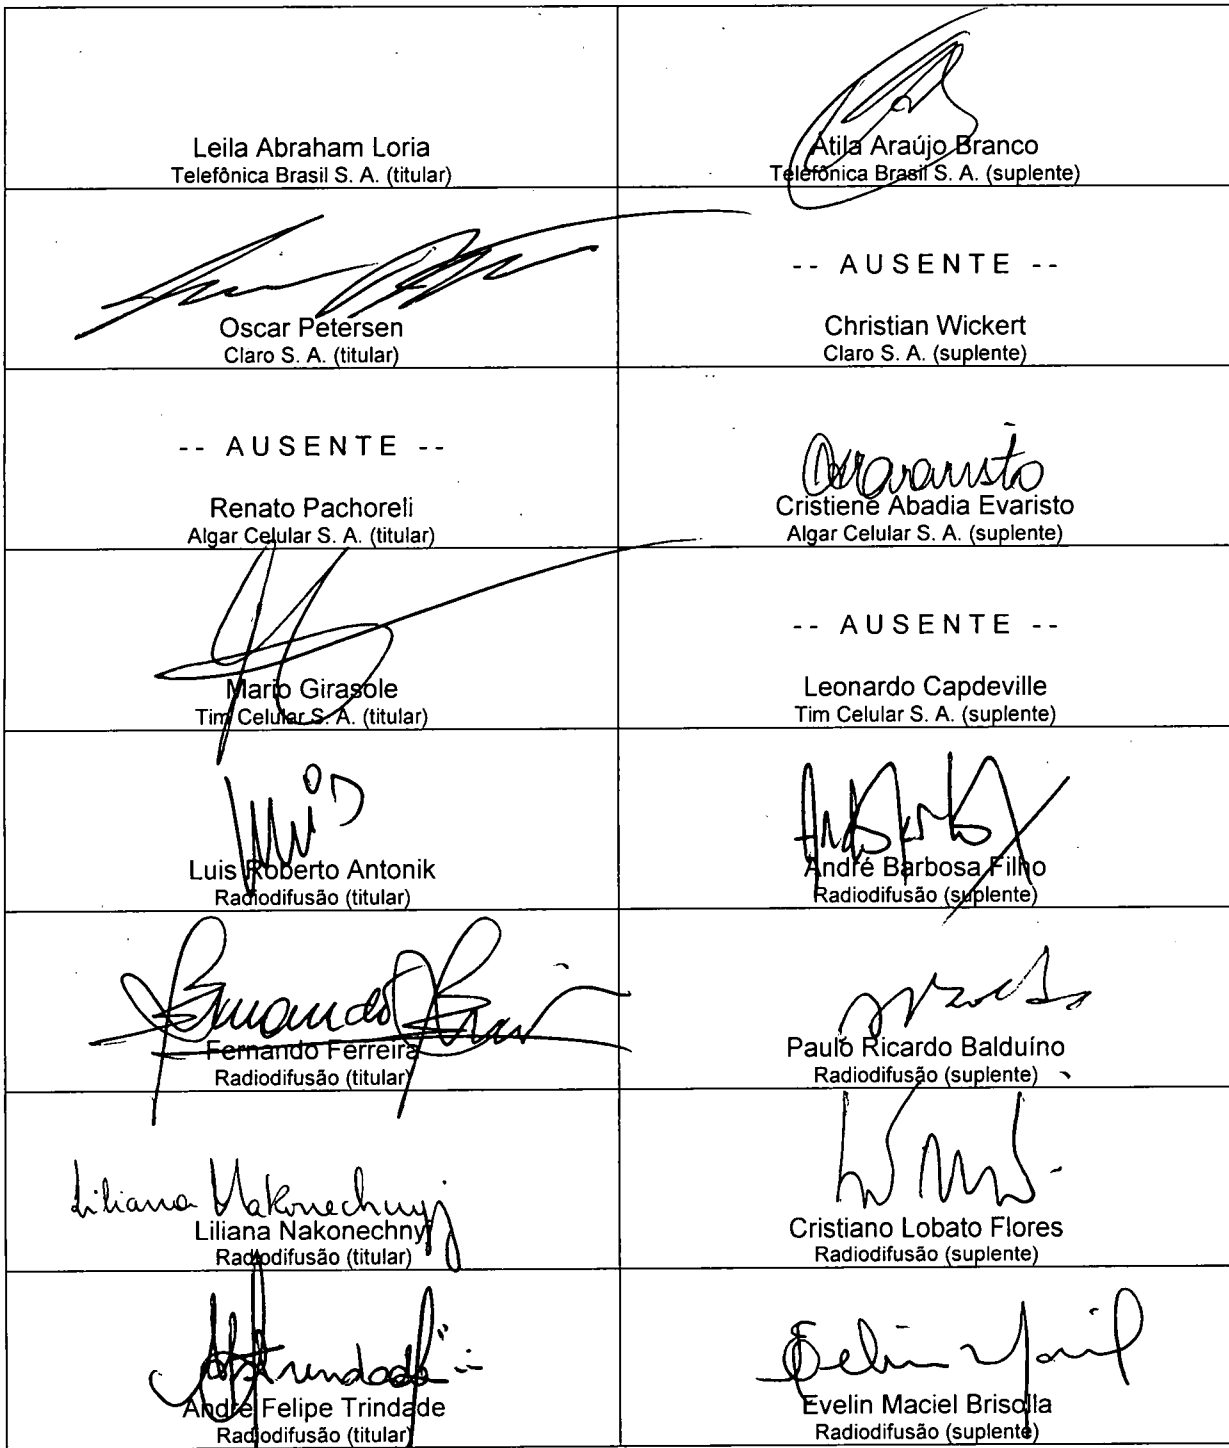 Leila Abraham Loria
Telefônica Brasil S. A. (titular)
Átila Araújo Branco
Telefônica Brasil S. A. (suplente)
Oscar Petersen
Claro S. A. (titular)
-- AUSENTE --
Christian Wickert
Claro S. A. (suplente)
-- AUSENTE --
Renato Pachoreli
Algar Celular S. A. (titular)
Cristiene Abadia Evaristo
Algar Celular S. A. (suplente)
Mario Girasole
Tim Celular S. A. (titular)
-- AUSENTE --
Leonardo Capdeville
Tim Celular S. A. (suplente)
Luis Roberto Antonik
Radiodifusão (titular)
André Barbosa Filho
Radiodifusão (suplente)
Fernando Ferreira
Radiodifusão (titular)
Paulo Ricardo Balduíno
Radiodifusão (suplente)
Liliana Nakonechnyj
Liliana Nakonechnyj
Radiodifusão (titular)
Cristiano Lobato Flores
Radiodifusão (suplente)
André Felipe Trindade
Radiodifusão (titular)
Evelin Maciel Brisolla
Radiodifusão (suplente)